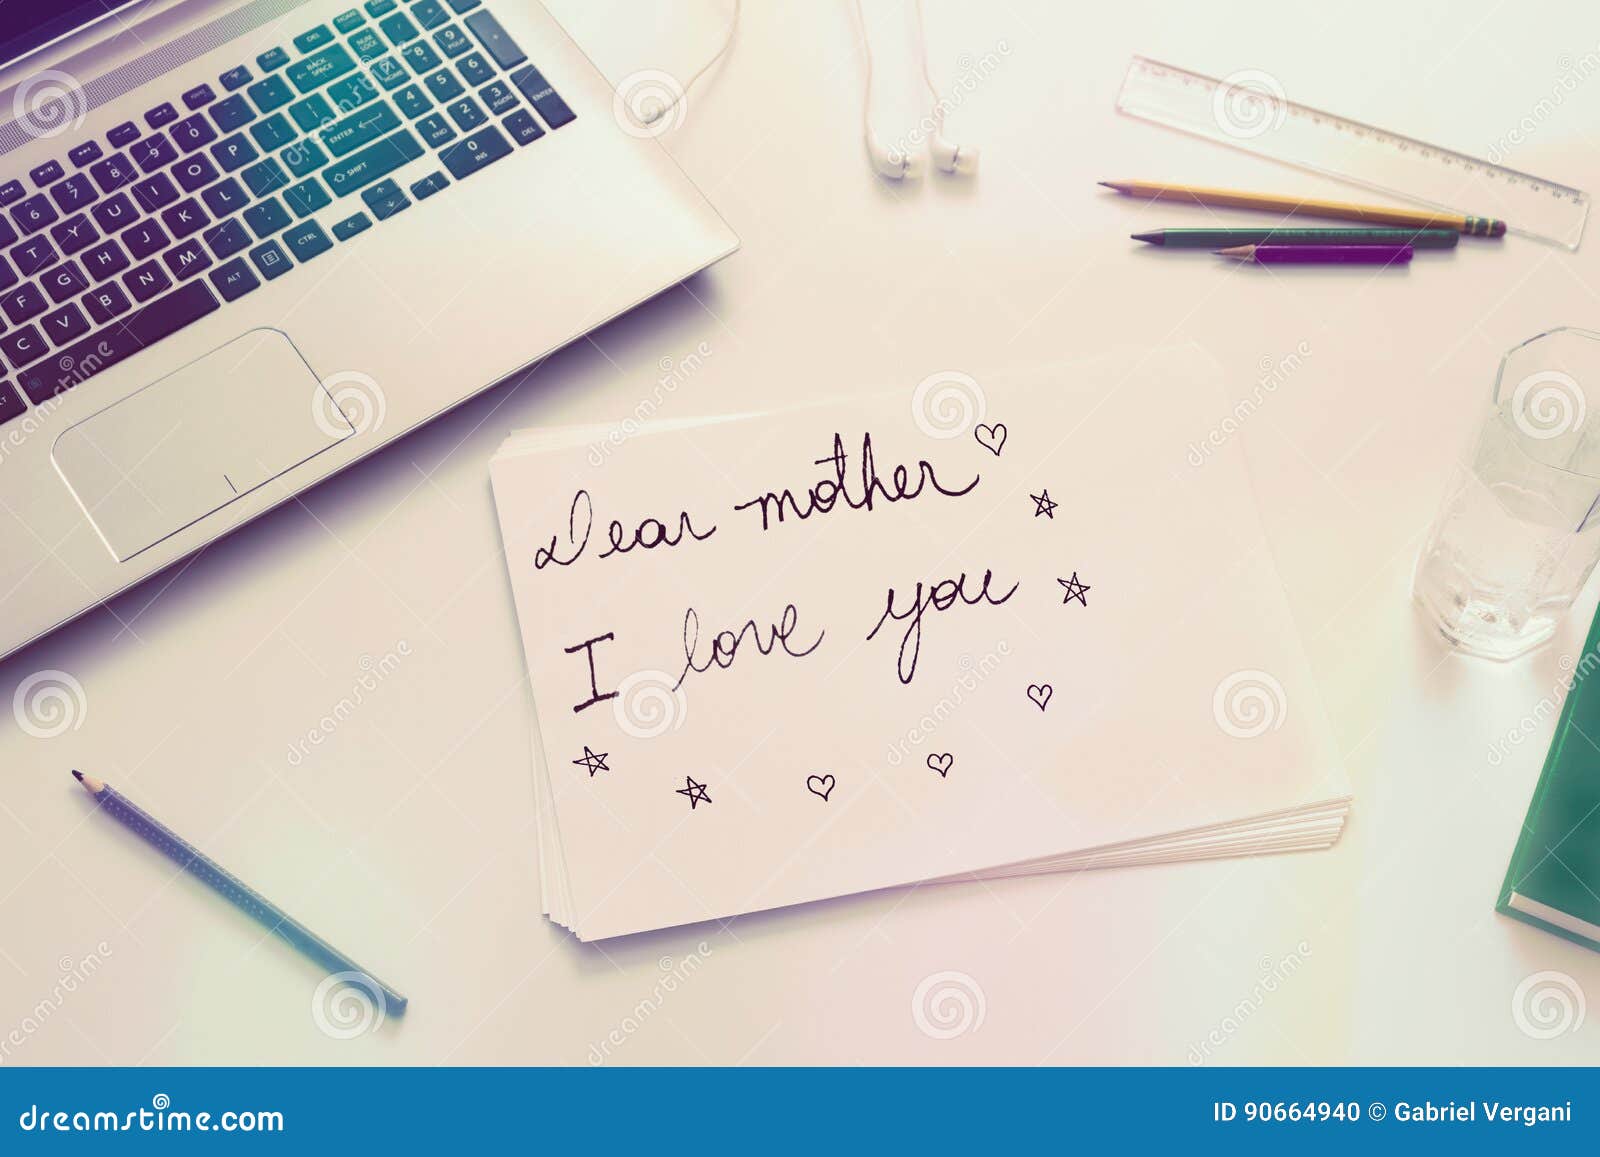 Dear mother
I love you
dreamstime.com
ID 90664940 © Gabriel Vergani